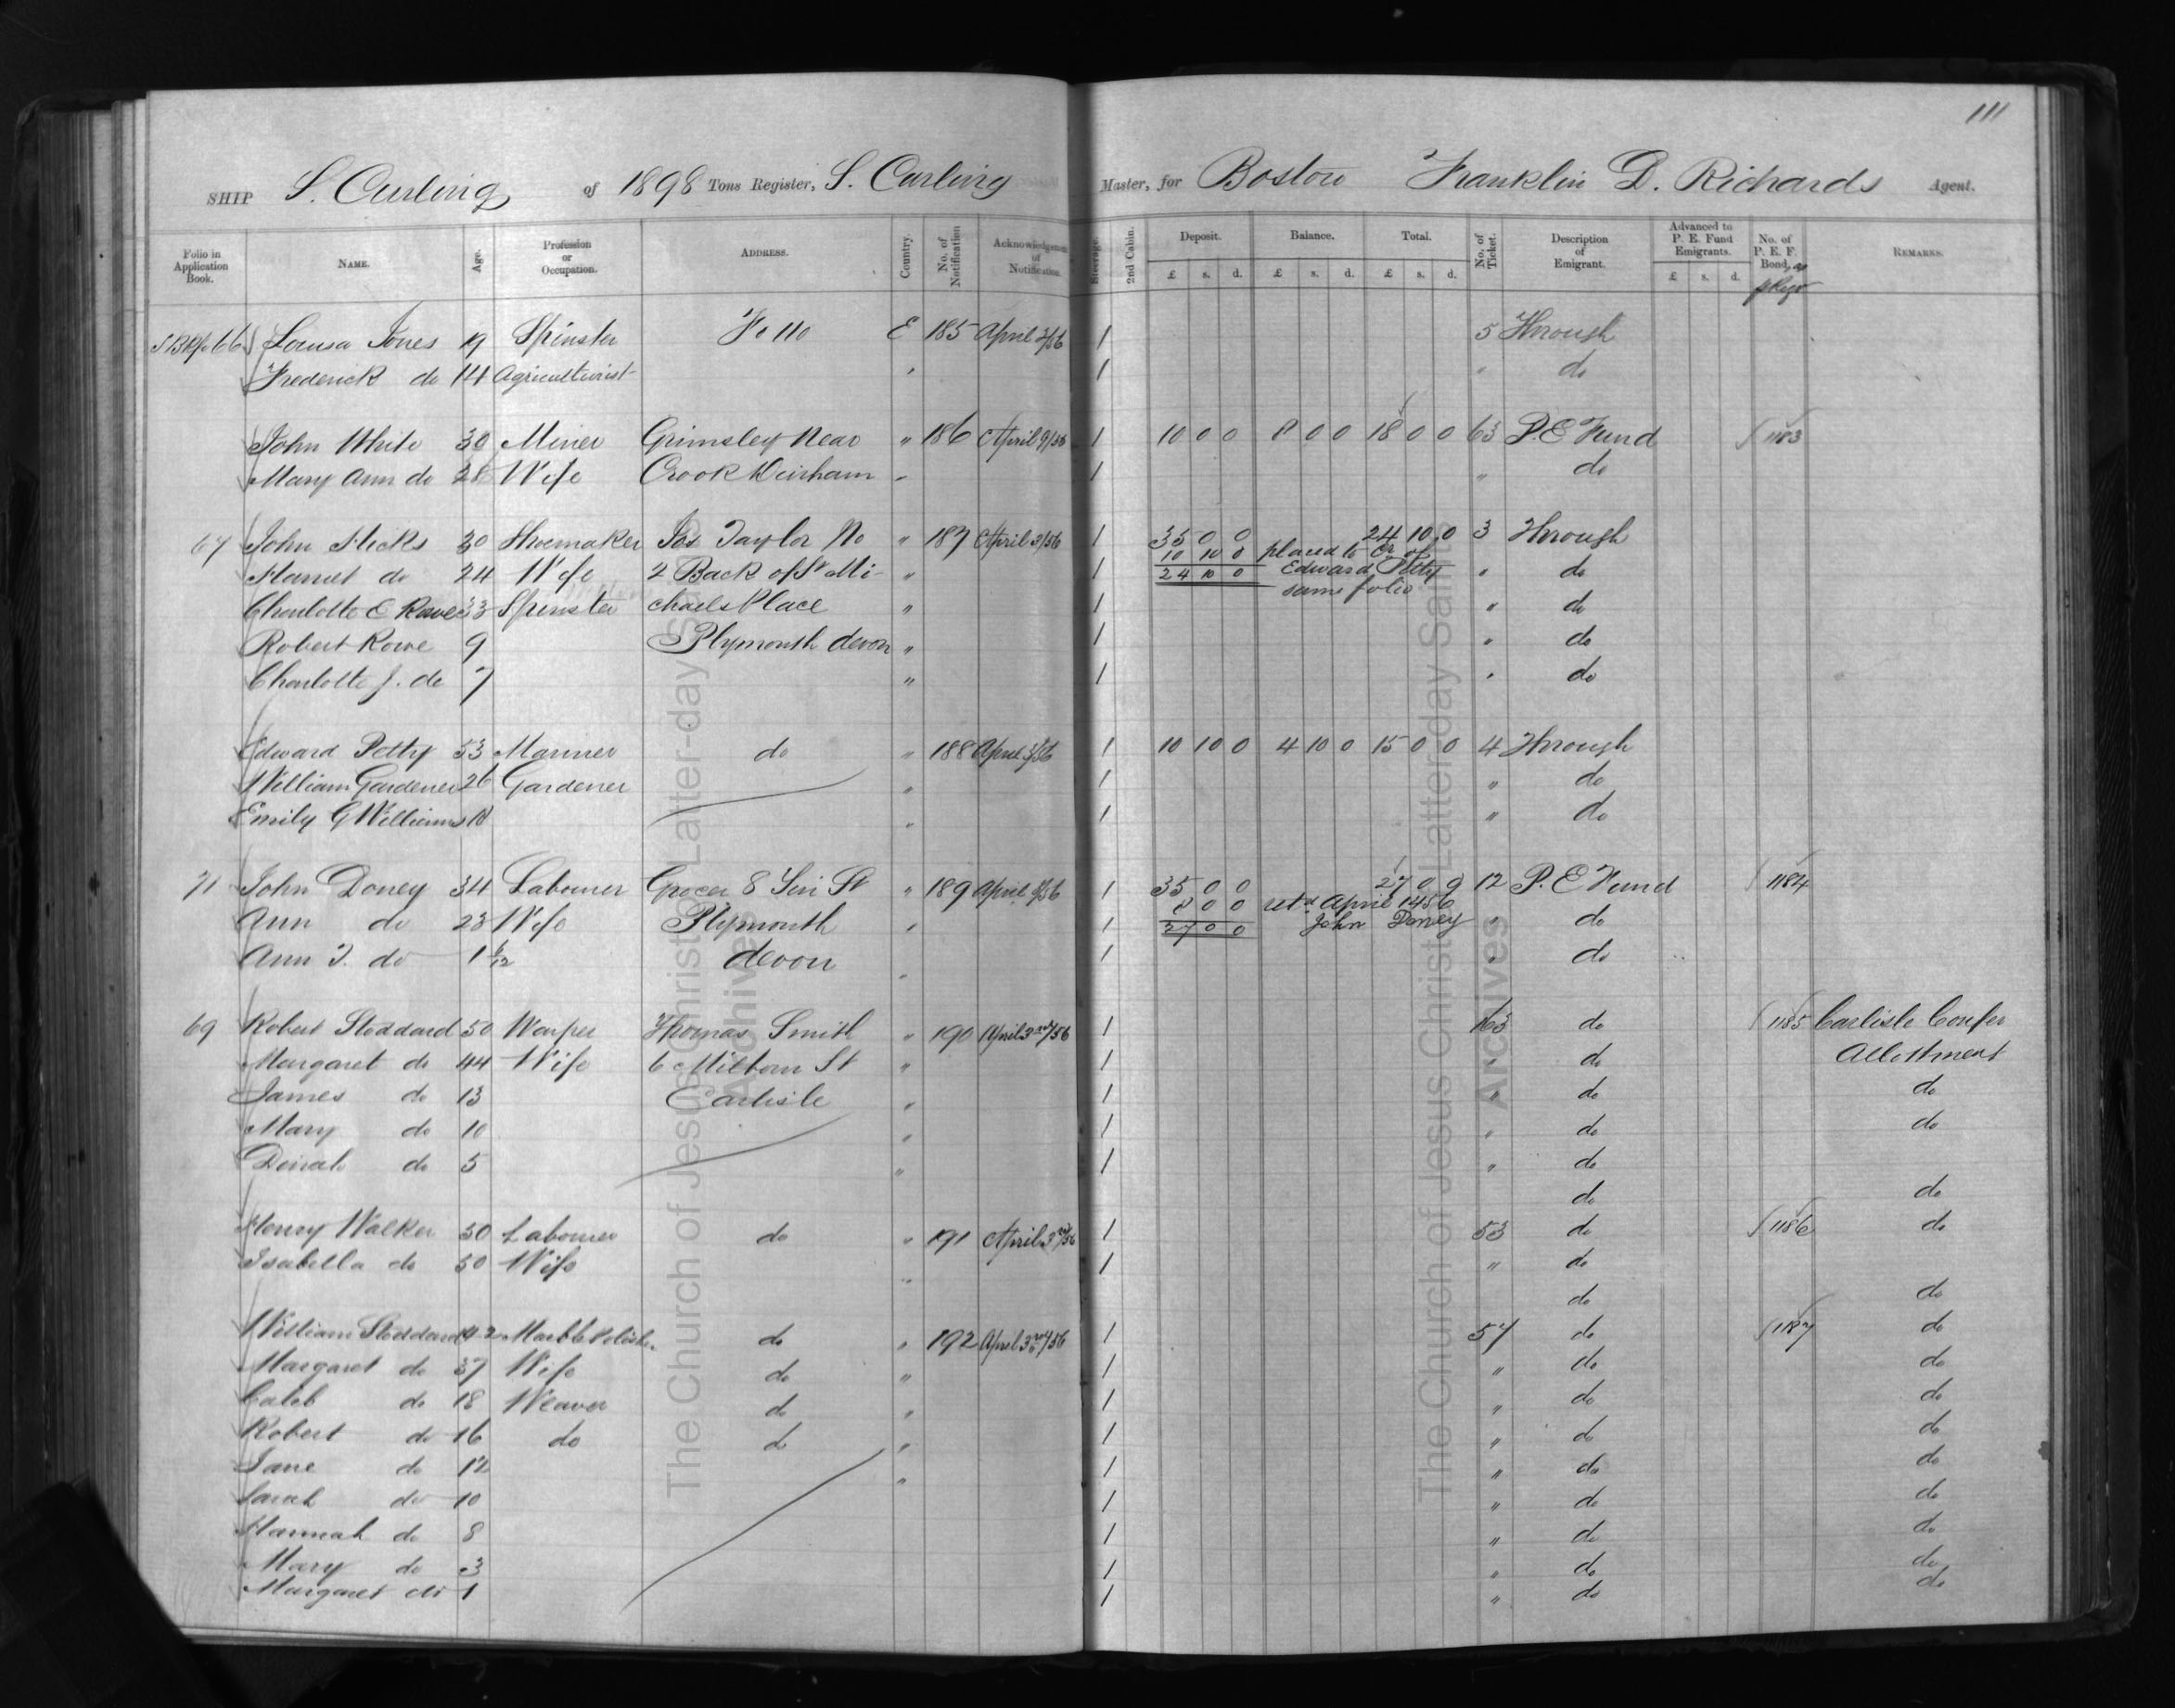 111
SHIP S. Curling of 1898 Tons Register, S. Curling Master, for Boston Franklin D. Richards Agent.
Folio in Application Book. NAME. Age. Profession or Occupation. ADDRESS. Country. No. of Notification Acknowledgment of Notification. Steerage. 2nd Cabin. Deposit. £ s. d. Balance. £ s. d. Total. £ s. d. No. of Ticket. Description of Emigrant. Advanced to P. E. Fund Emigrants. £ s. d. No. of P. E. F. Bond, REMARKS.
66 Louisa Jones 19 Spinster Fo 110 E 185 April 2/56 1 5 Through
Frederick do 14 Agriculturist " 1 " do
John White 30 Miner Grimsley Near " 186 April 9/56 1 10 0 0 8 0 0 18 0 0 63 P.E Fund 1183
Mary Ann do 28 Wife Crook Durham " 1 " do
67 John Hicks 30 Shoemaker Jas Taylor No " 187 April 3/56 1 35 0 0 24 10 0 3 Through
10 10 0 placed to Cr of
Harriet do 24 Wife 2 Back of St Mi- " 1 24 10 0 Edward Petty " do
same folio
Charlotte E Rowe 33 Spinster chaels Place " 1 " do
Robert Rowe 9 Plymouth devon " 1 " do
Charlotte J. do 7 " 1 " do
Edward Petty 53 Mariner do " 188 April 3/56 1 10 10 0 4 10 0 15 0 0 4 Through
William Gardener 26 Gardener " 1 " do
Emily G Williams 18 " 1 " do
71 John Doney 34 Labourer Grocer 8 St " 189 April /56 1 35 0 0 27 0 0 12 P. E Fund 1184
8 0 0 retd April 1456
Ann do 23 Wife Plymouth " 1 27 0 0 John Doney " do
Ann T. do 1 6/12 devon " 1 " do
69 Robert Stoddard 50 Warper Thomas Smith " 190 April 3rd/56 1 163 do 1185 Carlisle Confer
Margaret do 44 Wife 6 Milbourn St " 1 " do Allottment
James do 13 Carlisle " 1 " do do
Mary do 10 " 1 " do do
Dinah do 5 " 1 " do
do do
Henry Walker 50 Labourer do " 191 April 3rd/56 1 53 do 1186 do
Isabella do 50 Wife " 1 " do
do do
William Stoddard 42 Marble Polisher do " 192 April 3rd/56 1 57 do 1187 do
Margaret do 37 Wife do " 1 " do do
Caleb do 18 Weaver do " 1 " do do
Robert do 16 do do " 1 " do do
Jane do 12 " 1 " do do
Sarah do 10 1 " do do
Hannah do 8 1 " do do
Mary do 3 1 " do do
Margaret do 1 1 " do do
The Church of Jesus Christ of Latter-day Saints
Archives
The Church of Jesus Christ of Latter-day Saints
Archives